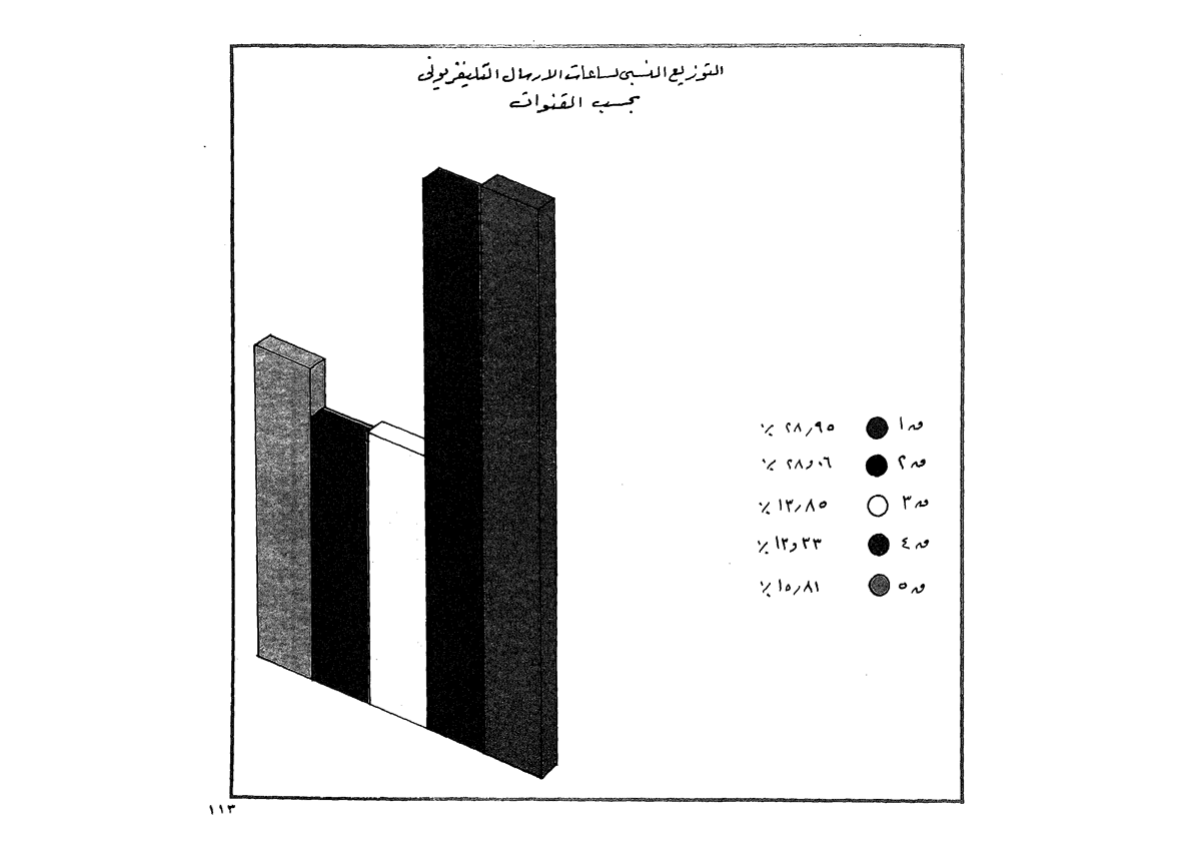 التوزيع النسبى لساعات الارسال التليفزيونى
بحسب القنوات
ق ١ ٢٨,٩٥ ٪
ق ٢ ٢٨و٠٦ ٪
ق ٣ ١٣,٨٥ ٪
ق ٤ ١٣و٣٣ ٪
ق ٥ ١٥,٨١ ٪
١١٣